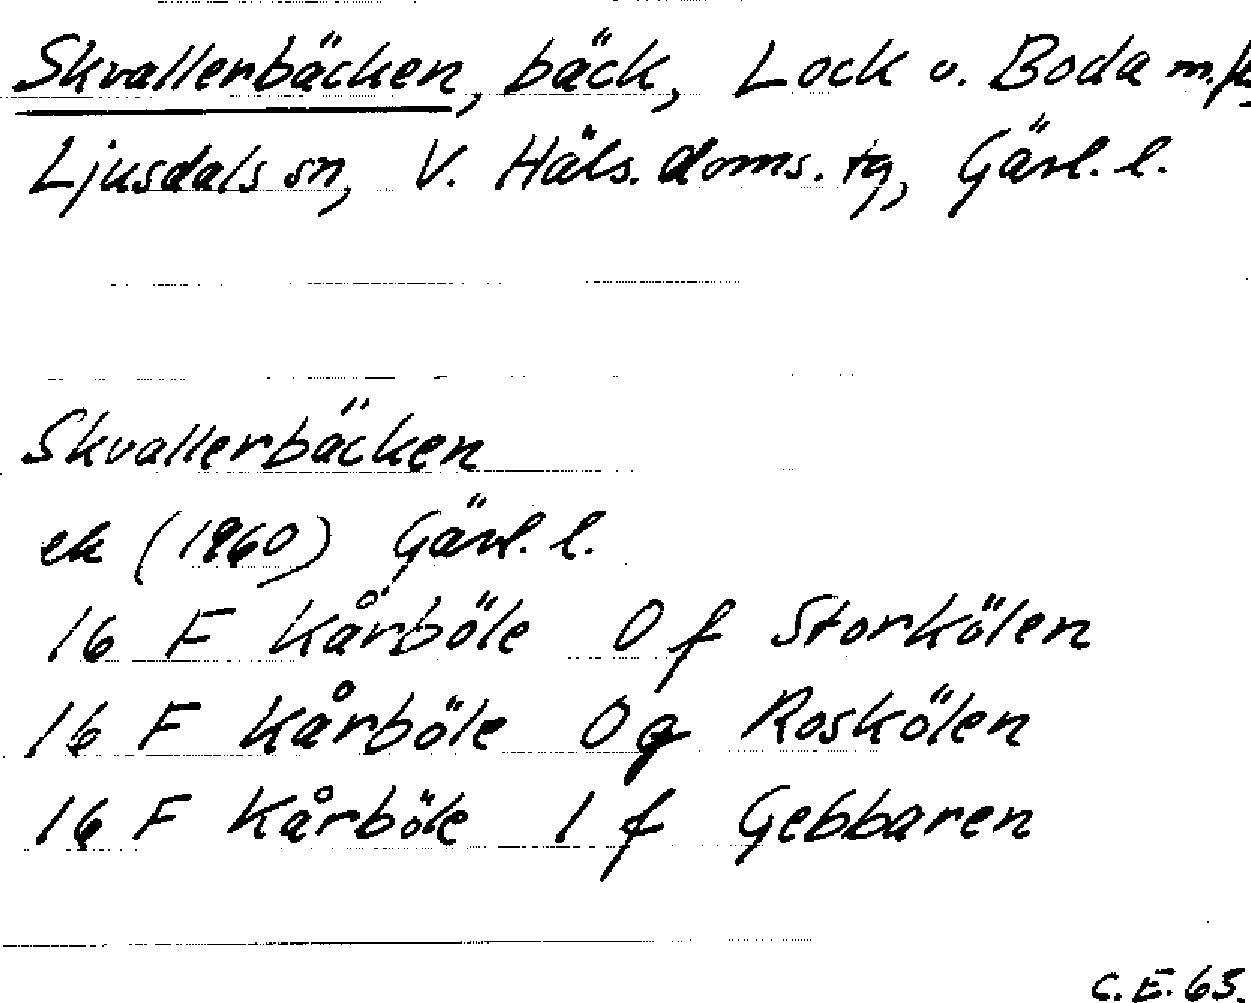 Skvallerbäcken, bäck, Lock o. Boda m.fl.
Ljusdals sn, V. Häls. doms. tg, Gävl. l.
Skvallerbäcken
ek (1960) Gävl. l.
16 F Kårböle 0 f Storkölen
16 F Kårböle 0 g Roskölen
16 F Kårböle 1 f Gebbaren
C.E. 65.